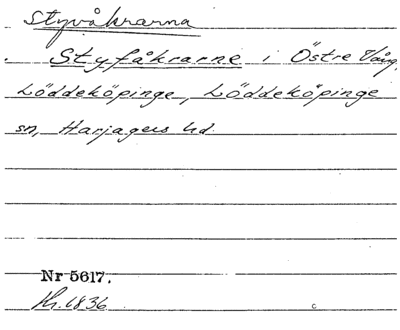 Styvåkrarna
Styfåkrarne i Östre Vång,
Löddeköpinge, Löddeköpinge
sn, Harjagers hd.
Nr 5617.
1836